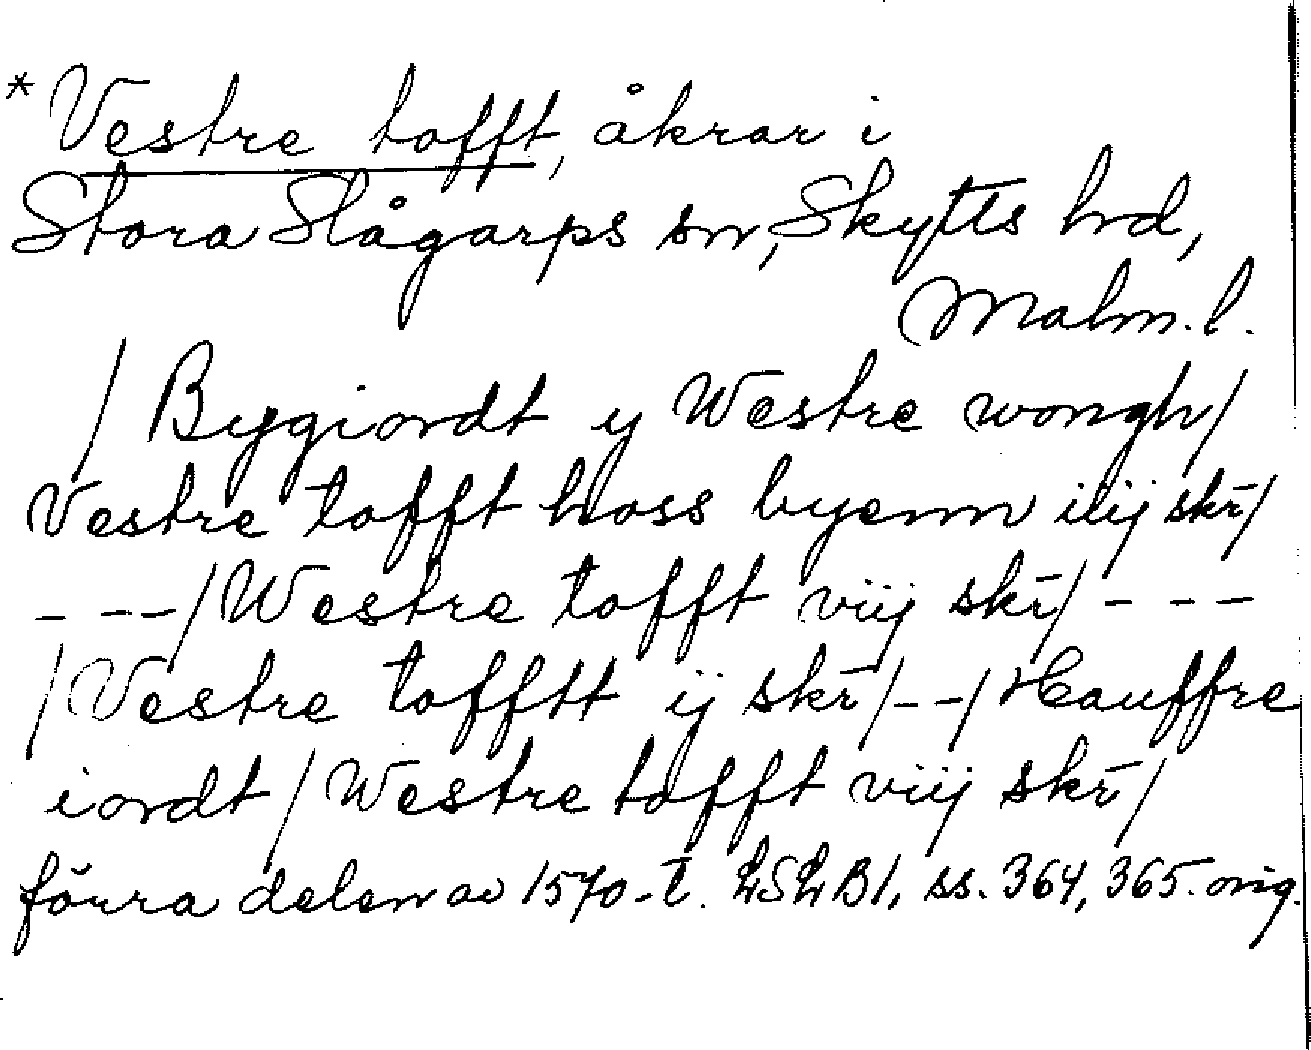 * Vestre tofft, åkrar i
Stora Slågarps sn, Skytts hd,
Malm. l.
/ Bygiordt y Westre wongh /
Vestre tofft hoss byenn iiij skr̄ /
- -- / Westre tofft viij skr̄ / - - -
/ Vestre tofftt ij skr̄ / - - / Hauffre
iordt / Westre tofft viij skr̄ /
förra delen av 1570-t. LSLB1, ss. 364, 365. orig.